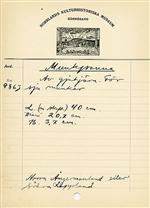 NORRLANDS KULTURHISTORISKA MUSEUM
HÄRNÖSAND
Munkpanna
No
9867
Av gjutjärn. För
sju munkar
L. (m skaft) 40 cm.
Diam. 20,2 cm.
H. 3,7 cm.
Norra Ångermanland eller
södra Lappland